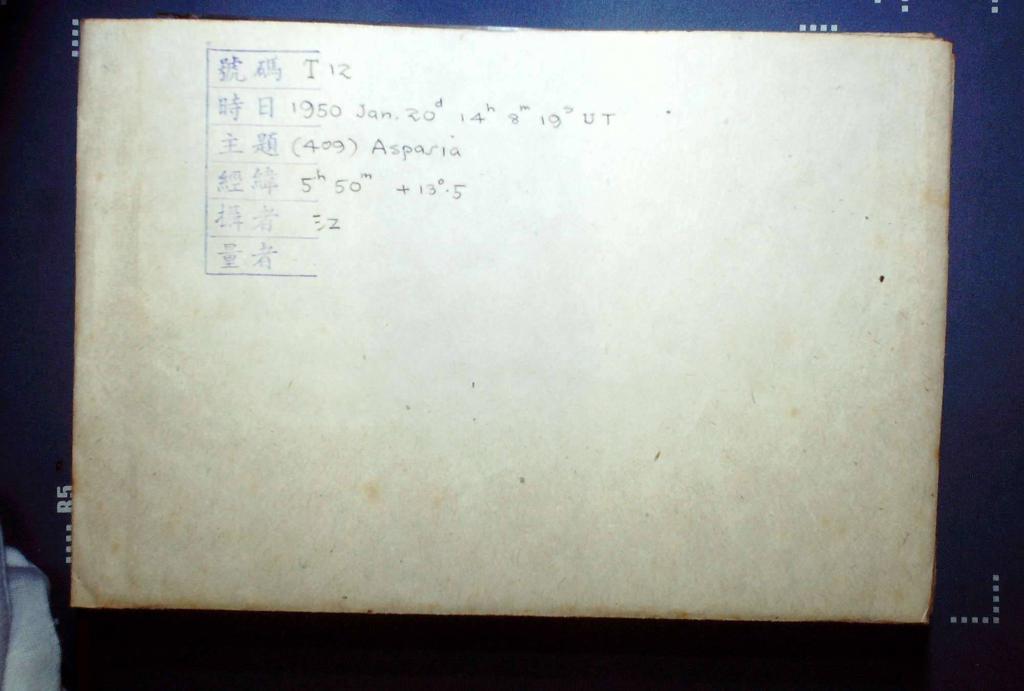 號碼 T 12
時日 1950 Jan. 20ᵈ 14ʰ 8ᵐ 19ˢ UT
主題 (409) Aspasia
經緯 5ʰ 50ᵐ +13°.5
攝者
量者
B5